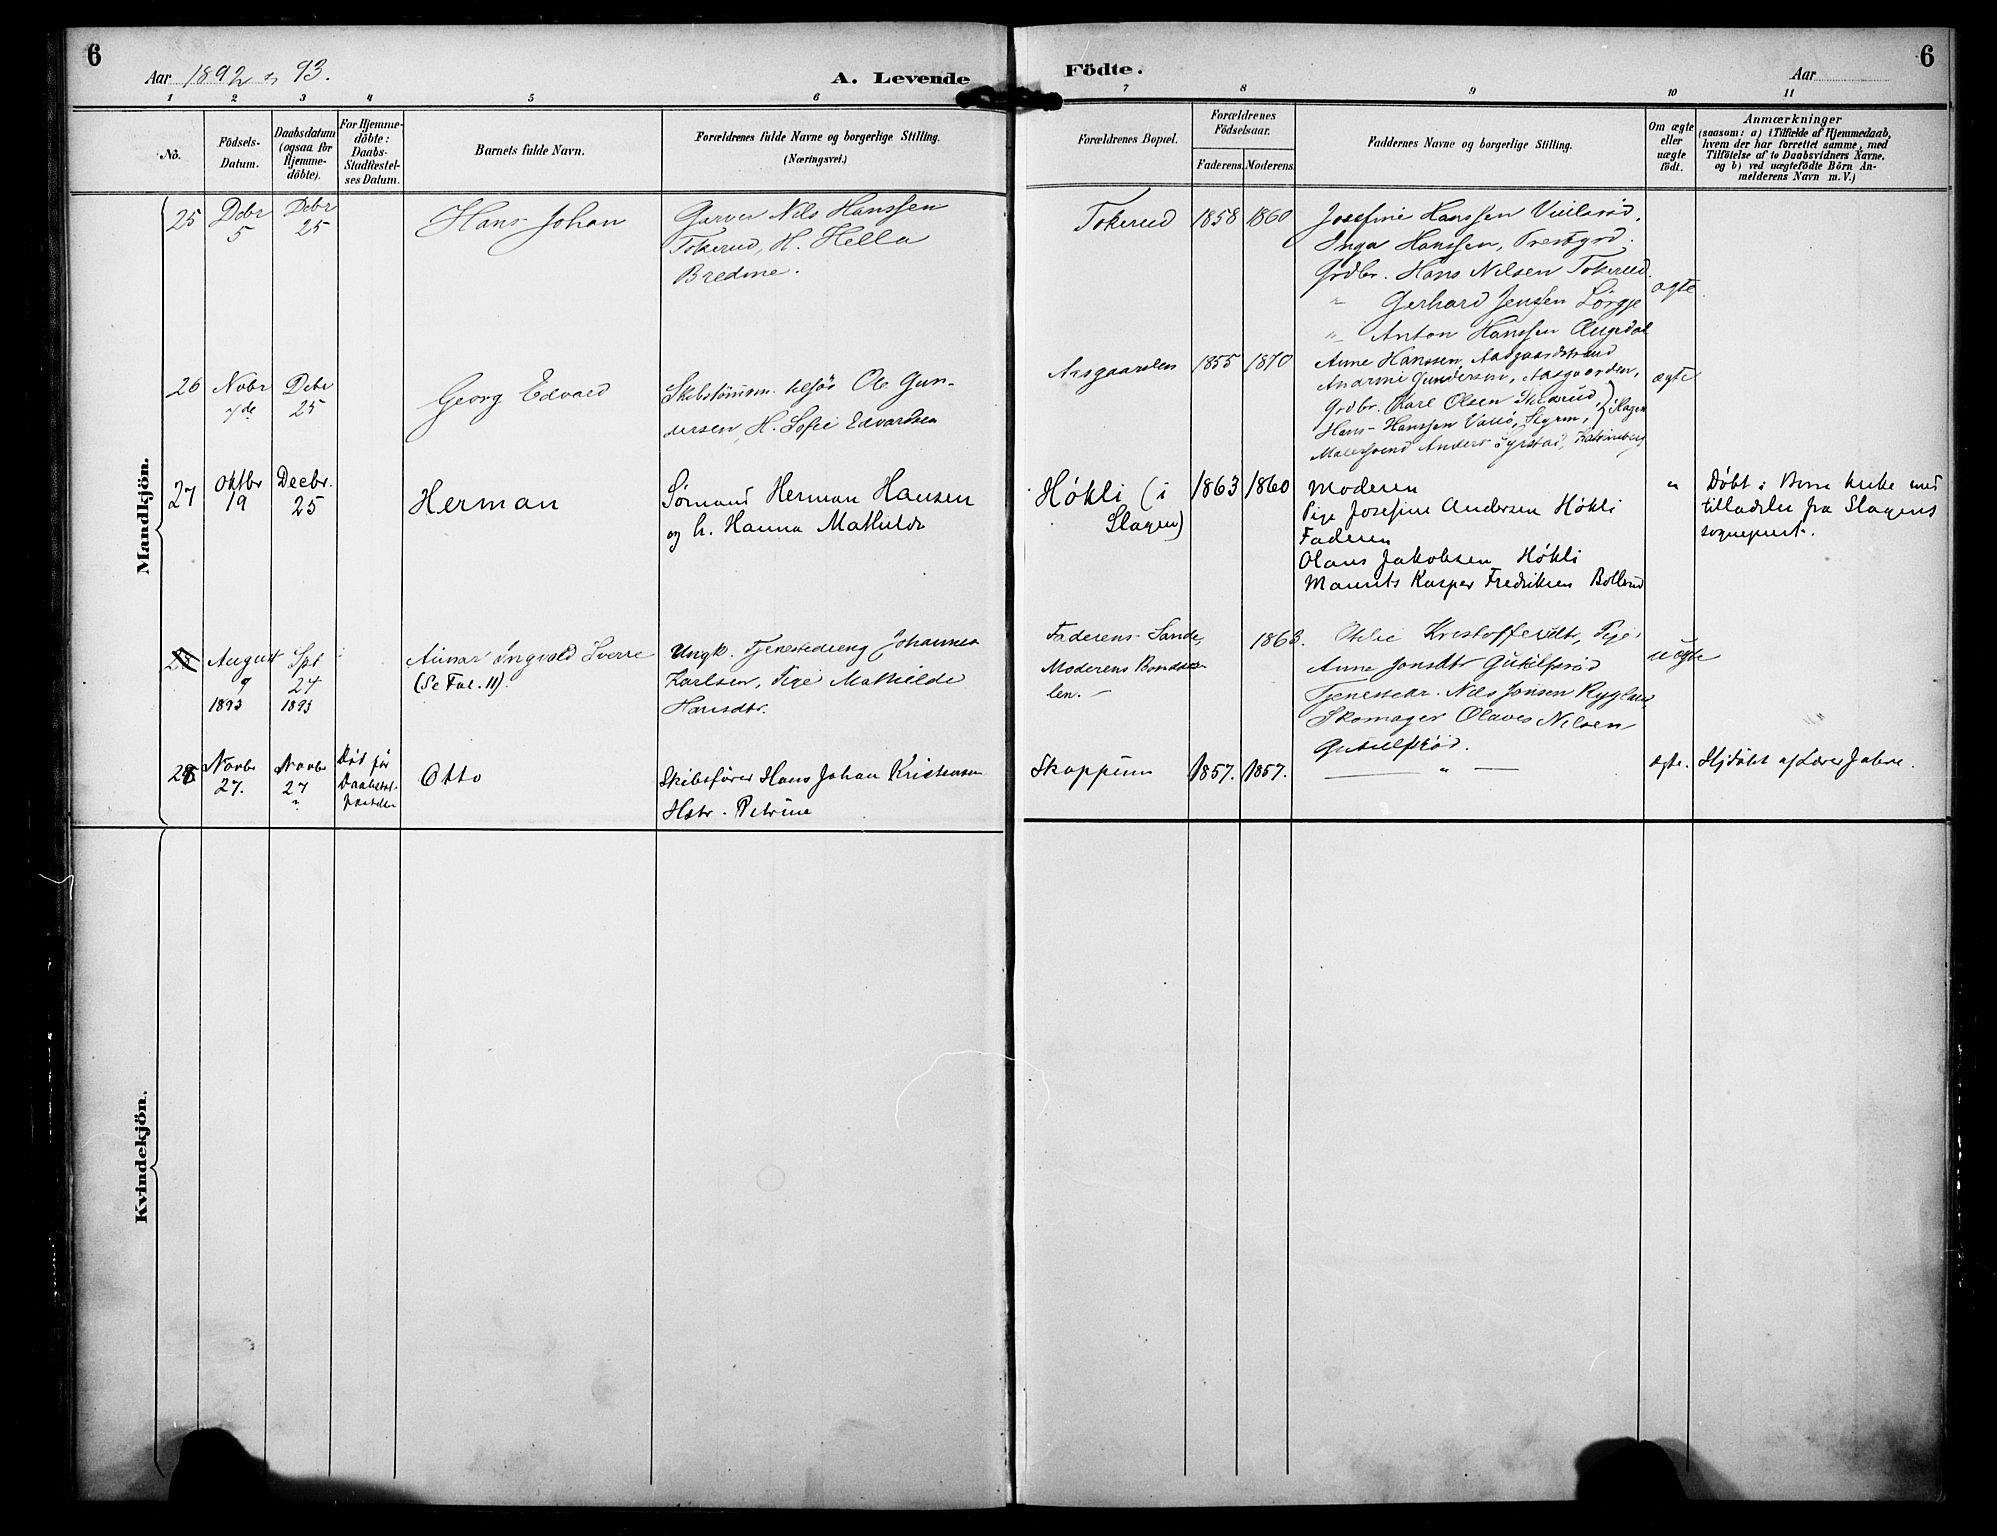 6
Aar 1892 & 93.
A. Levende
Födte.
Aar
6
1 2 3 4 5 6 7 8 9 10 11
No.
Födsels-
Datum.
Daabsdatum
(ogsaa for
Hjemme-
döbte).
For Hjemme-
döbte:
Daabs-
Stadfæstel-
ses Datum.
Barnets fulde Navn.
Forældrenes fulde Navne og borgerlige Stilling.
(Næringsvei.)
Forældrenes Bopæl.
Forældrenes
Födselsaar.
Faderens. Moderens.
Faddernes Navne og borgerlige Stilling.
Om ægte
eller
uægte
födt.
Anmærkninger
(saasom: a) i Tilfælde af Hjemmedaab,
hvem der har forrettet samme, med
Tilföielse af to Daabsvidners Navne.
og b) ved uægtefödte Börn An-
melderens Navn m. V.)
Mandkjön.
25
Debr
5
Debr
25
Hans Johan
Garver Nils Hanssen
Tokerud, H. Hella
Bredine.
Tokerud
1858
1860
Josefine Hanssen
Inga Hanssen, Prestgrd.
Grdbr. Hans Nilsen Tokerud.
" Gerhard Jenssen
" Anton Hanssen
ægte
26
Novbr
7de
Debr
25
Georg Edvard
Skibstømm. Ole Gun-
dersen, H. Sofie Edvardsen
Aasgaarden
1855
1870
Anne Hanssen, Aasgaardstrand
Gundersen, Aasgaarden,
Grdbr. Karl Olsen
Hans Hanssen Styrm, } Slagen
Anders
ægte
27
Oktbr
19
Decbr.
25
Herman
Sømand Herman Hansen
og h. Hanna Mathilde
Høkli (i
Slagen)
1863
1860
Moderen
Pige Josefine Andersen Høkli
Faderen
Olaus Jakobsen Høkli
Maurits Kasper Fredriksen Bollerud
"
Døbt i Borre kirke med
tilladelse fra Slagens
sognepræst.
August
9
1893
Spt
24
1893
Ingvald Sverre
(Se Fol. 11).
Ungk. Tjenestedreng Johannes
Karlsen, Pige Mathilde
Hansdtr.
Faderens Sande,
Moderens
len.
1863.
Kristoffersdtr, Pige
Anne Jonsdtr
Tjenestekar. Nils Jonsen
Skomager Olaves Nilsen
uægte
28
Novbr
27.
Novbr
27
Død før
Daabsstad-
fæstelsen
Otto
Skibsfører Hans Johan Kristensen
Hstr. Petrine
Skoppum
1857.
1857.
"
ægte.
Hjdøbt af Lærer
Kvindekjön.